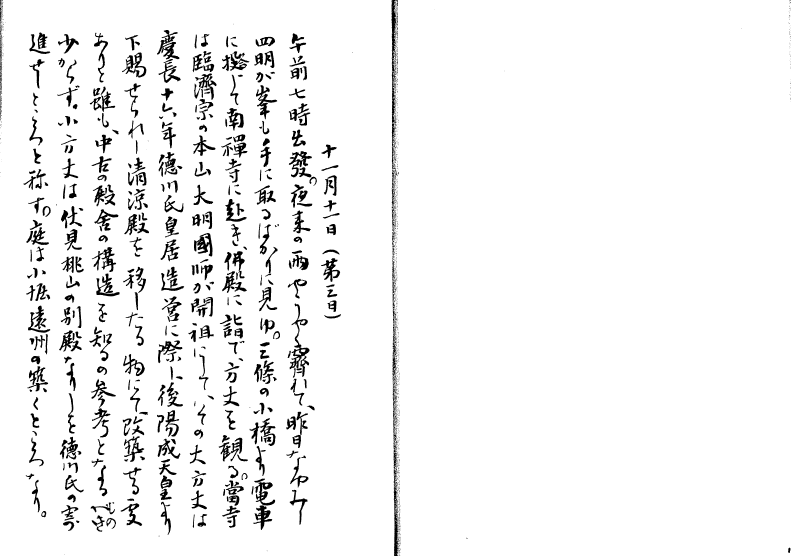 十一月十一日(第三日)
午前七時出發。夜来の雨やうやく霽れて、昨日なやみし
四明が峯も手に取るばかりに見ゆ。三條の小橋より電車
に搭じて南禪寺に赴き、佛殿に詣で、方丈を観る。當寺
は臨濟宗の本山大明國師が開祖にして、その大方丈は
慶長十六年徳川氏皇居造営に際し、後陽成天皇より
下賜せられし清涼殿を移したる物にて改築せる
ありと雖も、中古の殿舎の構造を知るの参考となるべきもの
少からず。小方丈は伏見桃山の別殿なりしを徳川氏の寄
進せしところと称す。庭は小堀遠州の築くところなり。